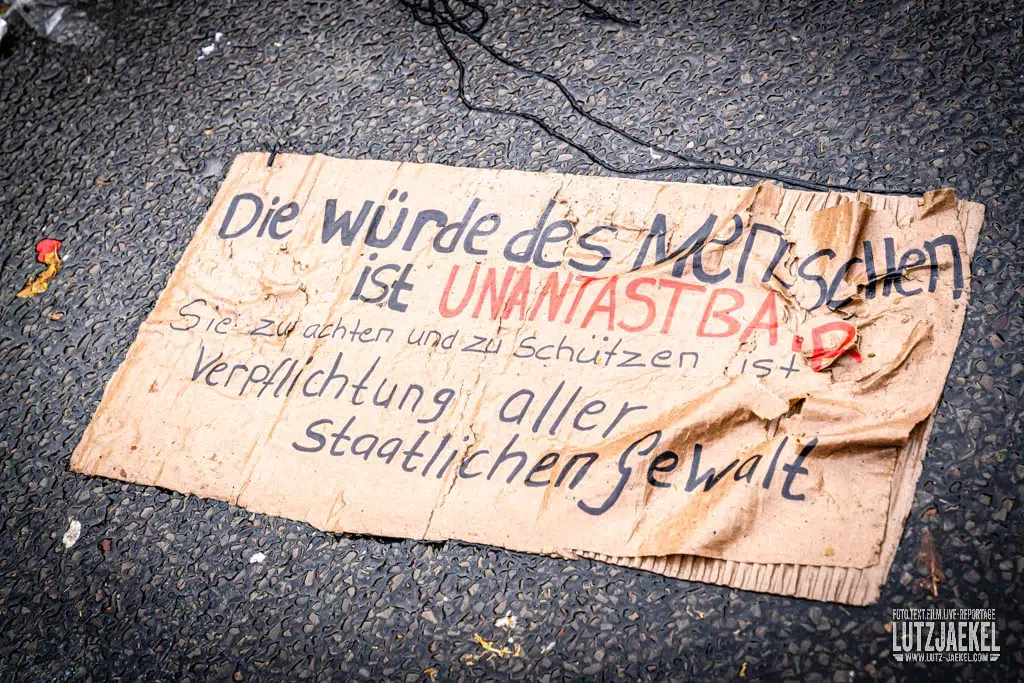 Die würde des Menschen
ist UNANTASTBAR
Sie zu achten und zu Schützen ist
Verpflichtung aller
staatlichen Gewalt
FOTO.TEXT.FILM.LIVE-REPORTAGE
LUTZJAEKEL
WWW.LUTZ-JAEKEL.COM